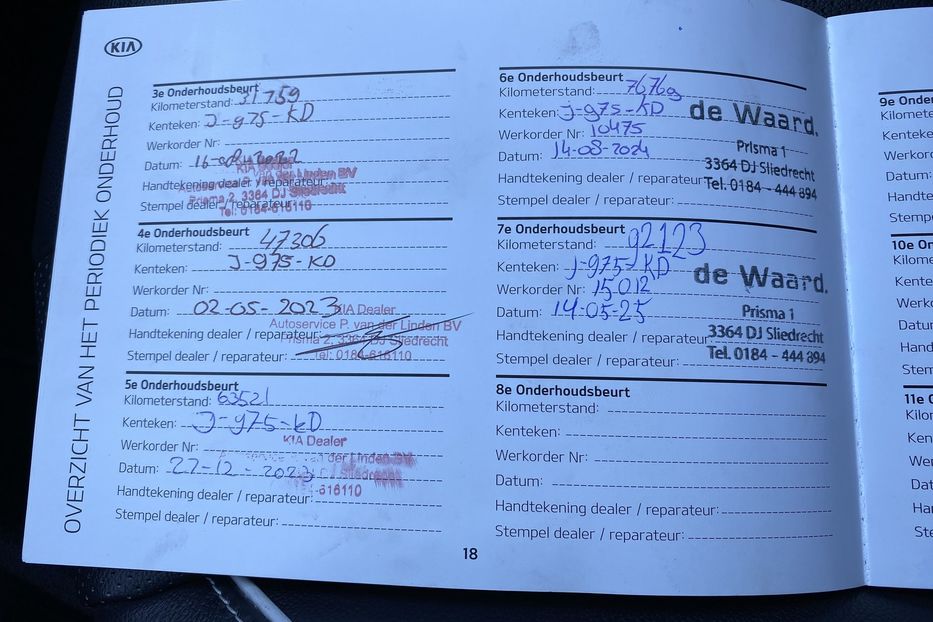 KIA
OVERZICHT VAN HET PERIODIEK ONDERHOUD
3e Onderhoudsbeurt
Kilometerstand: 31759
Kenteken: J-975-KD
Werkorder Nr:
Datum: 16- 2022
KIA Dealer
Handtekening dealer / reparateur:
Autoservice P. van der Linden BV
Stempel dealer / reparateur:
Prisma 2, 3364 DJ Sliedrecht
Tel: 0184-616110
4e Onderhoudsbeurt
Kilometerstand: 47306
Kenteken: J-975-KD
Werkorder Nr:
Datum: 02-05-2023
KIA Dealer
Autoservice P. van der Linden BV
Handtekening dealer / reparateur:
Prisma 2, 3364 DJ Sliedrecht
Stempel dealer / reparateur:
Tel: 0184-616110
5e Onderhoudsbeurt
Kilometerstand: 63521
Kenteken: J-975-KD
Werkorder Nr:
KIA Dealer
van der Linden BV
Datum: 22-12-2023
Sliedrecht
Handtekening dealer / reparateur:
-616110
Stempel dealer / reparateur:
6e Onderhoudsbeurt
Kilometerstand: 76769
Kenteken: J-975-KD
de Waard.
Werkorder Nr: 10475
Datum: 14-08-2024
Prisma 1
3364 DJ Sliedrecht
Handtekening dealer / reparateur:
Tel. 0184 - 444 894
Stempel dealer / reparateur:
7e Onderhoudsbeurt
Kilometerstand: 92123
Kenteken: J-975-KD
de Waard.
Werkorder Nr: 15012
Datum: 14-05-25
Prisma 1
Handtekening dealer / reparateur:
3364 DJ Sliedrecht
Stempel dealer / reparateur:
Tel. 0184 - 444 894
8e Onderhoudsbeurt
Kilometerstand:
Kenteken:
Werkorder Nr:
Datum:
Handtekening dealer / reparateur:
Stempel dealer / reparateur:
18
9e Onder
Kilomete
Kenteke
Werkord
Datum:
Handte
Stemp
10e On
Kilome
Kente
Werk
Datur
Hand
Stem
11e O
Kilor
Ken
We
Dat
Har
Ste